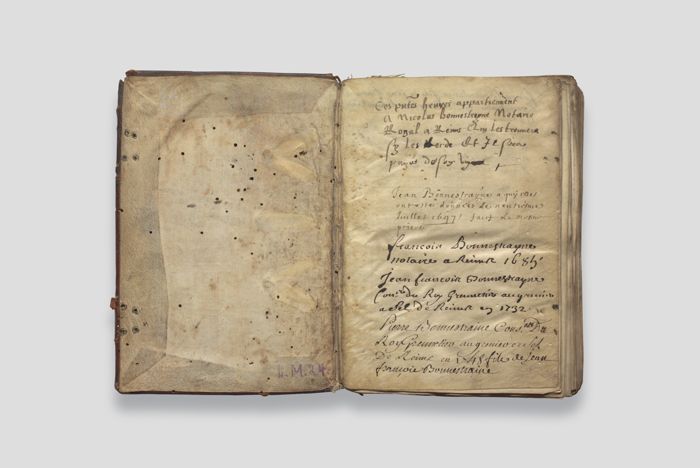 Ces pntes heures appartiennent
A Nicolas Bonnestrayne Notaire
Royal a Reims Qui les trouvera
sy les Perde Et Il sera
payer de son vin
Jean Bonnestrayne a qui elles
ont estées données le
Juillet 1697
françois Bonnestrayne
notaire a Reims 168
Jean françois Bonnestrayne
Conr du Roy Grenetier au grenier
a sel de Reims en 1732
Pierre Bonnestraine Conr Du
Roy Grenetier au grenier a sel
De Reims en 1748 fils de Jean
françois Bonnestraine
L.M.24